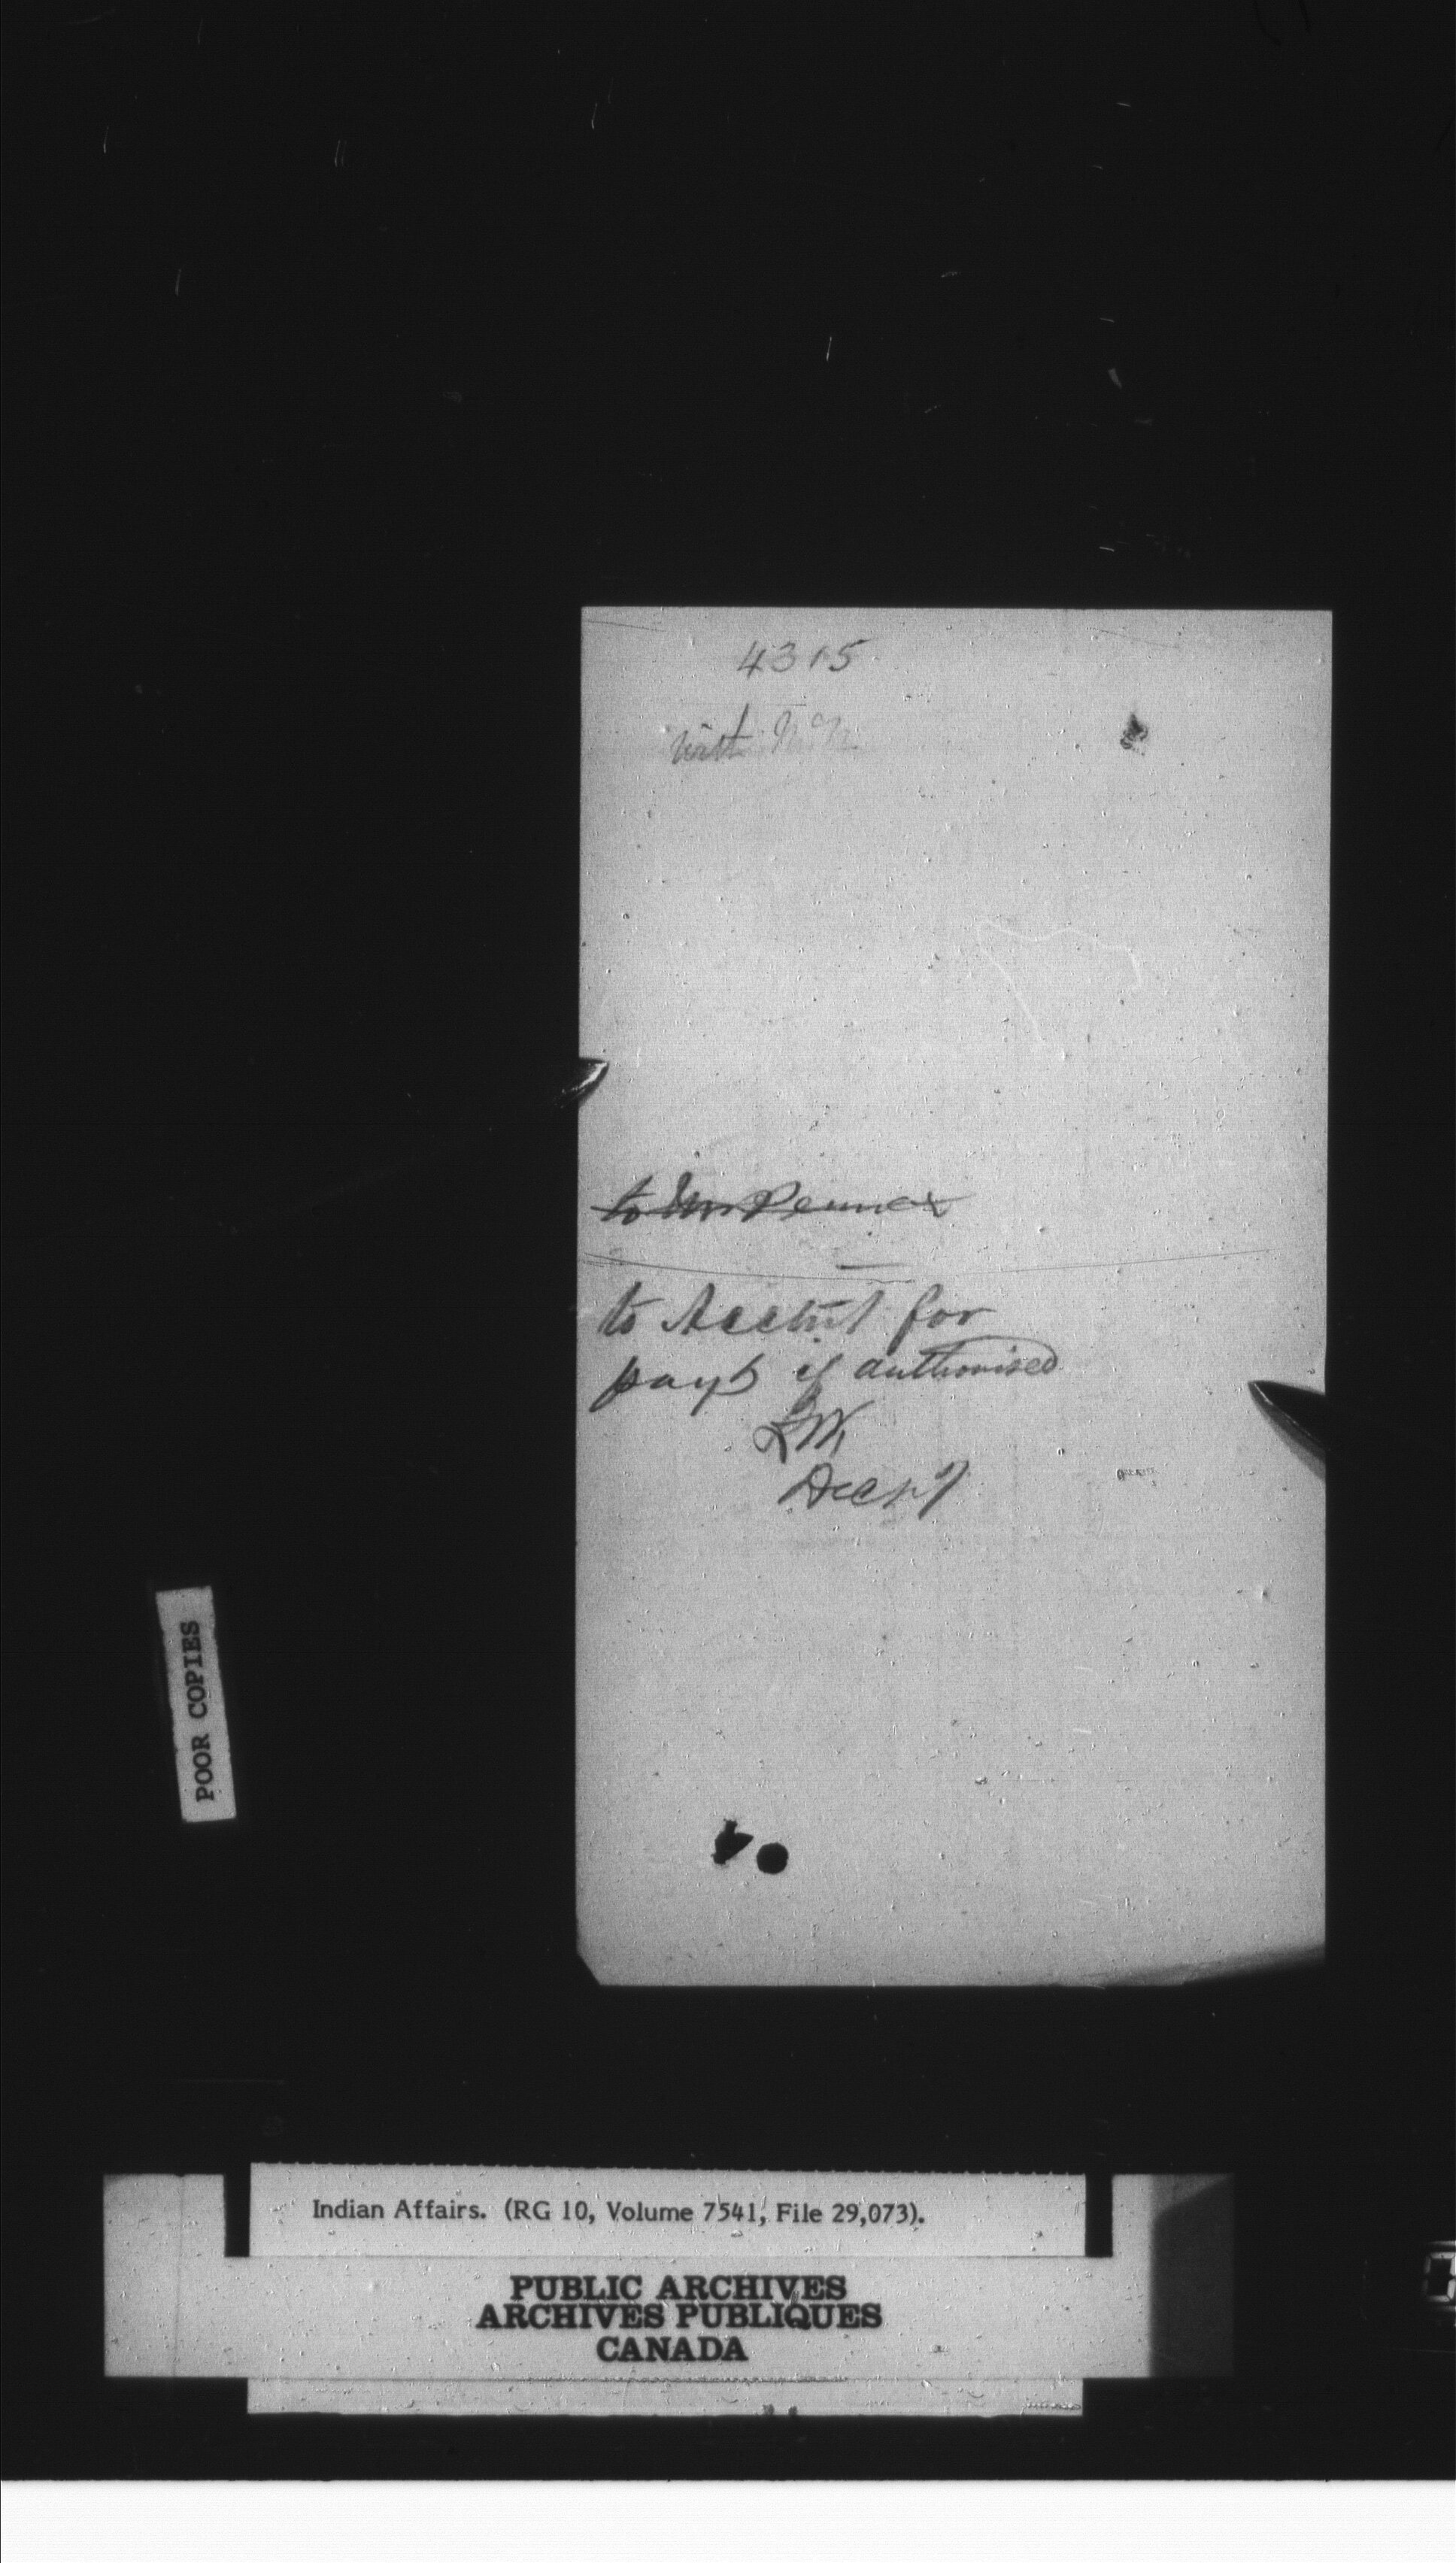 4315
to Mr
to Acctnt for
payt if authorised
Dec
POOR COPIES
Indian Affairs. (RG 10, Volume 7541, File 29,073).
PUBLIC ARCHIVES
ARCHIVES PUBLIQUES
CANADA